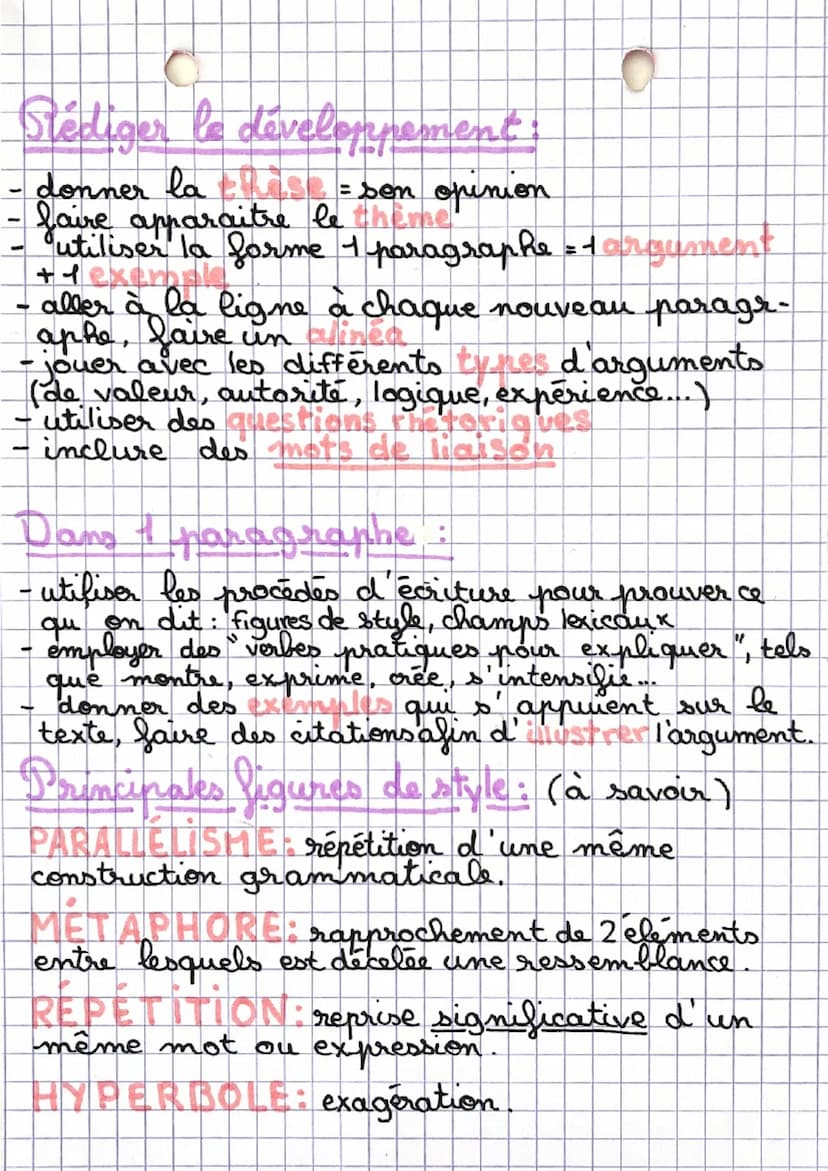 Rédiger le développement :
- donner la thèse = son opinion
- faire apparaitre le thème
- utiliser la forme 1 paragraphe = 1 argument
+ 1 exemple
- aller à la ligne à chaque nouveau paragr-
aphe, faire un alinéa
- jouer avec les différents types d'arguments
(de valeur, autorité, logique, expérience...)
- utiliser des questions rhétoriques
- inclure des mots de liaison
Dans 1 paragraphe :
- utiliser les procédés d'écriture pour prouver ce
qu'on dit : figures de style, champs lexicaux
- employer des "verbes pratiques pour expliquer", tels
que montre, exprime, crée, s'intensifie...
- donner des exemples qui s'appuient sur le
texte, faire des citations afin d'illustrer l'argument.
Principales figures de style : (à savoir)
PARALLÉLISME : répétition d'une même
construction grammaticale.
MÉTAPHORE : rapprochement de 2 éléments
entre lesquels est décelée une ressemblance.
RÉPÉTITION : reprise significative d'un
même mot ou expression.
HYPERBOLE : exagération.